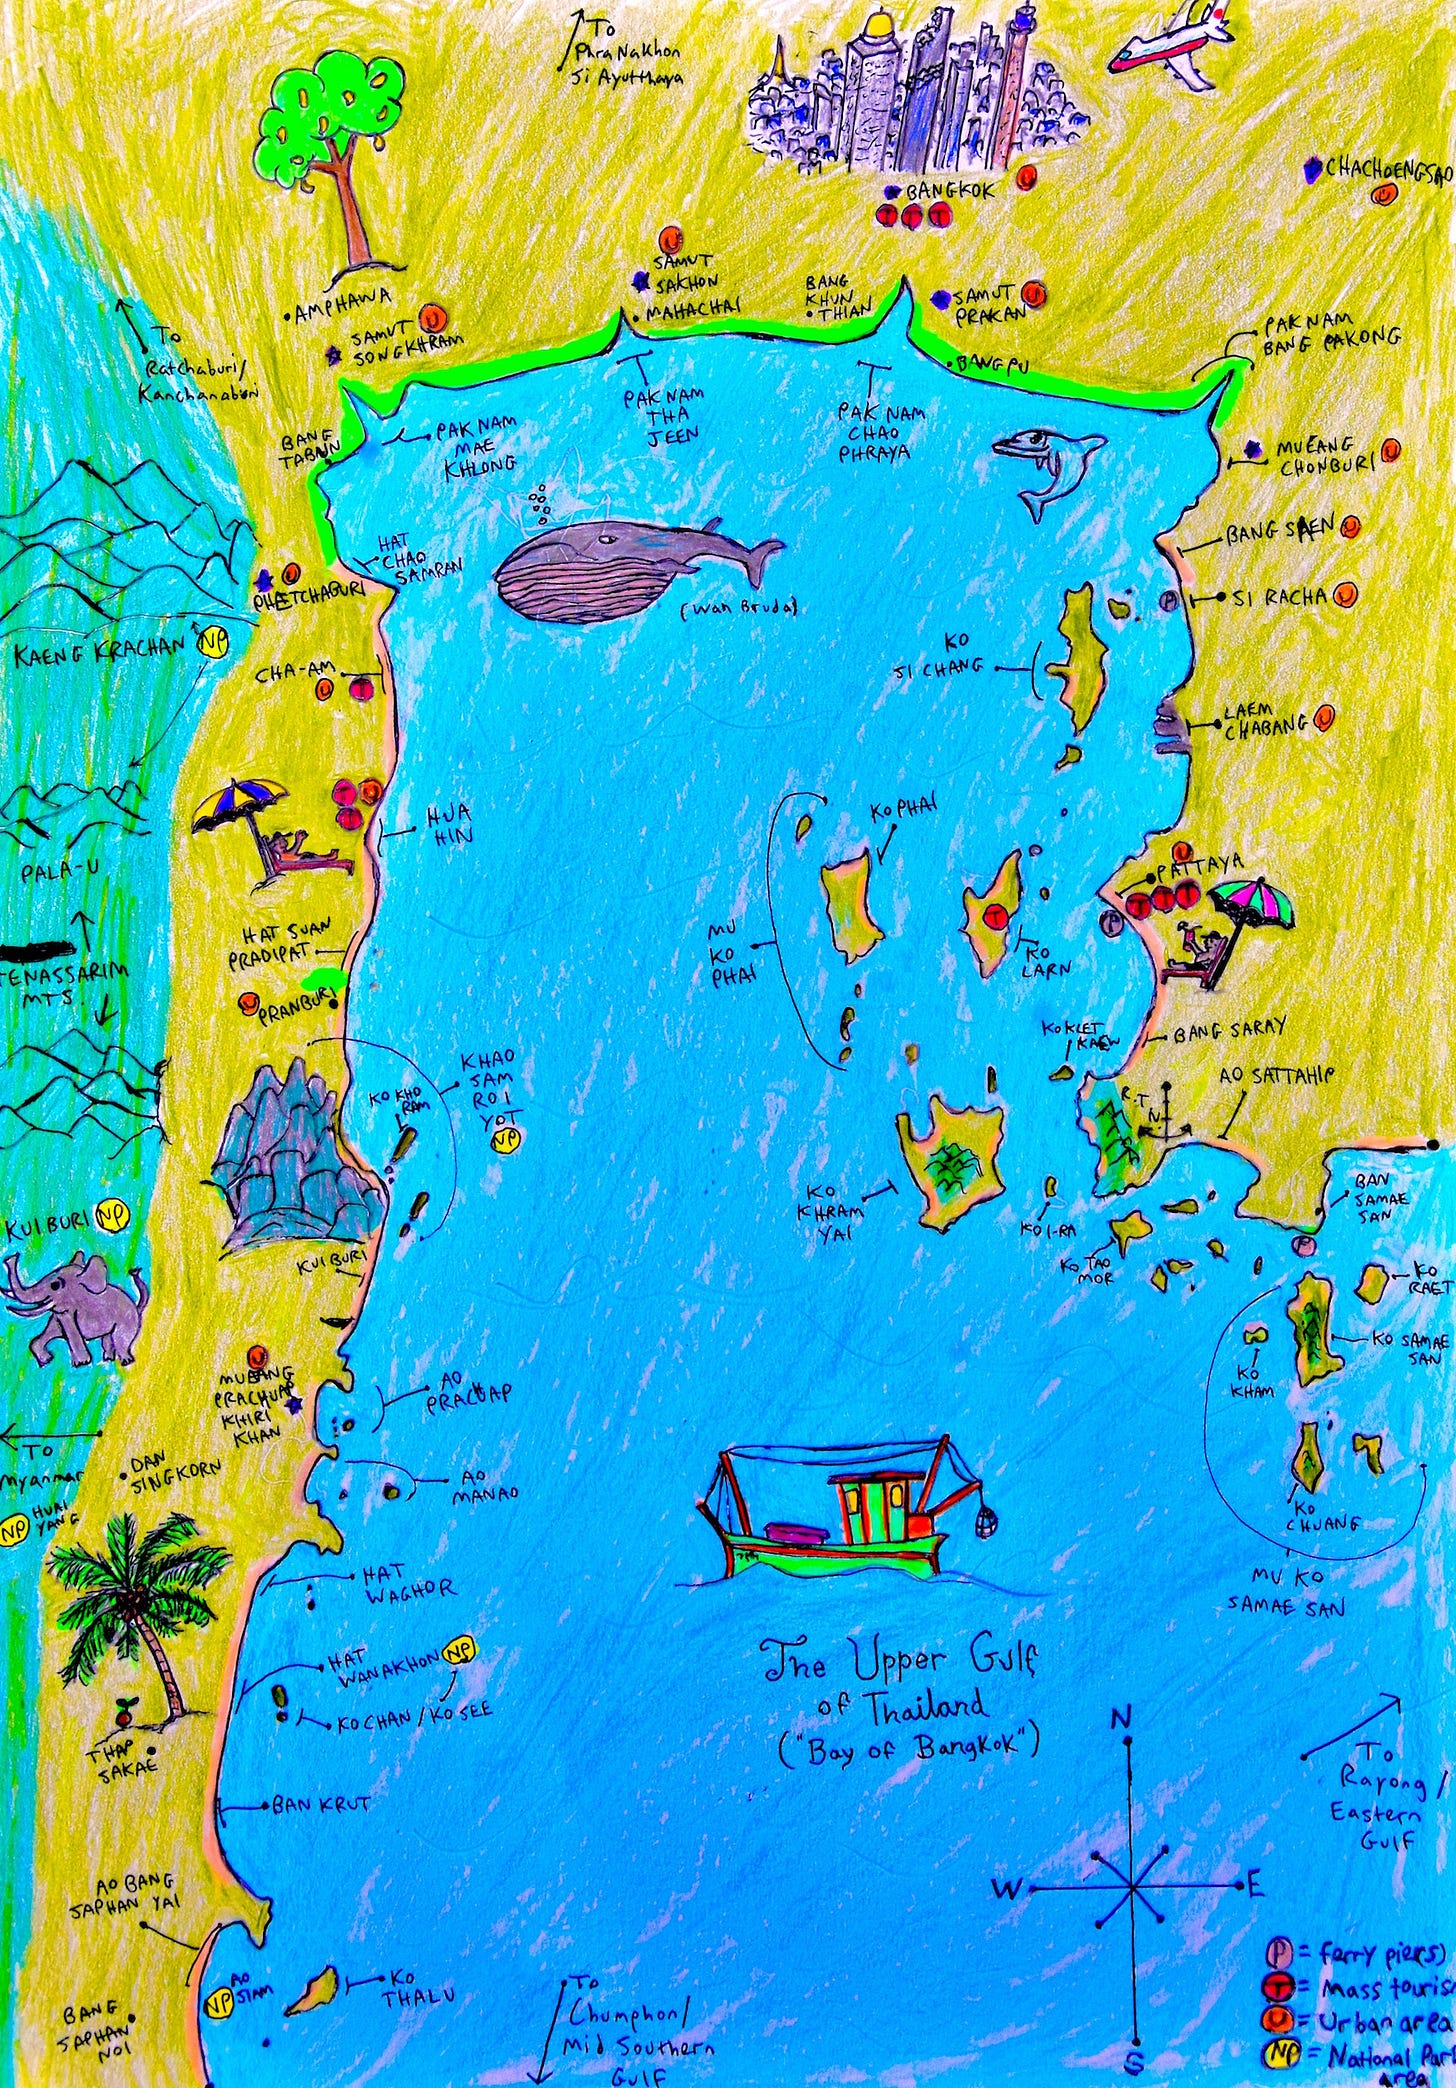 To
Phra Nakhon
Si Ayutthaya
BANGKOK
U
T T T
CHACHOENGSAO
U
U
SAMUT
SAKHON
MAHACHAI
BANG
KHUN
THIAN
SAMUT
PRAKAN
U
BANGPU
PAKNAM
BANG PAKONG
AMPHAWA
SAMUT
SONGKHRAM
U
To
Ratchaburi/
Kanchanaburi
BANG
TABUN
PAK NAM
MAE
KHLONG
PAK NAM
THA
JEEN
PAK NAM
CHAO
PHRAYA
MUEANG
CHONBURI
U
BANG SAEN
U
HAT
CHAO
SAMRAN
U
PHETCHABURI
(Wan Bruda)
P
SI RACHA
U
KAENG KRACHAN
NP
KO
SI CHANG
CHA-AM
U T
LAEM
CHABANG
U
T U
T
HUA
HIN
KO PHAI
PALA-U
U
PATTAYA
P T T T
T
KO
LARN
MU
KO
PHAI
HAT SUAN
PRADIPAT
TENASSARIM
MTS
U
PRANBURI
KO KLET
KAEW
BANG SARAY
AO SATTAHIP
R.T.N
KHAO
SAM
ROI
YOT
NP
KO KHO
RAM
KO
KHRAM
YAI
KO I-RA
KO TAO
MOR
BAN
SAMAE
SAN
P
KUI BURI
NP
KUI BURI
KO
RAET
KO SAMAE
SAN
KO
KHAM
U
MUEANG
PRACHUAP
KHIRI
KHAN
AO
PRACUAP
To
Myanmar
DAN
SINGKORN
AO
MANAO
NP
HUAI
YANG
KO
CHUANG
MU KO
SAMAE SAN
HAT
WAGHOR
HAT
WANAKHON
NP
KO CHAN / KO SEE
The Upper Gulf
of Thailand
("Bay of Bangkok")
THAP
SAKAE
BAN KRUT
N
W
E
S
To
Rayong /
Eastern
Gulf
AO BANG
SAPHAN YAI
NP
AO
SIAM
KO
THALU
BANG
SAPHAN
NOI
To
Chumphon/
Mid Southern
Gulf
P = ferry pier(s)
T = Mass touris
U = Urban area
NP = National Par
area